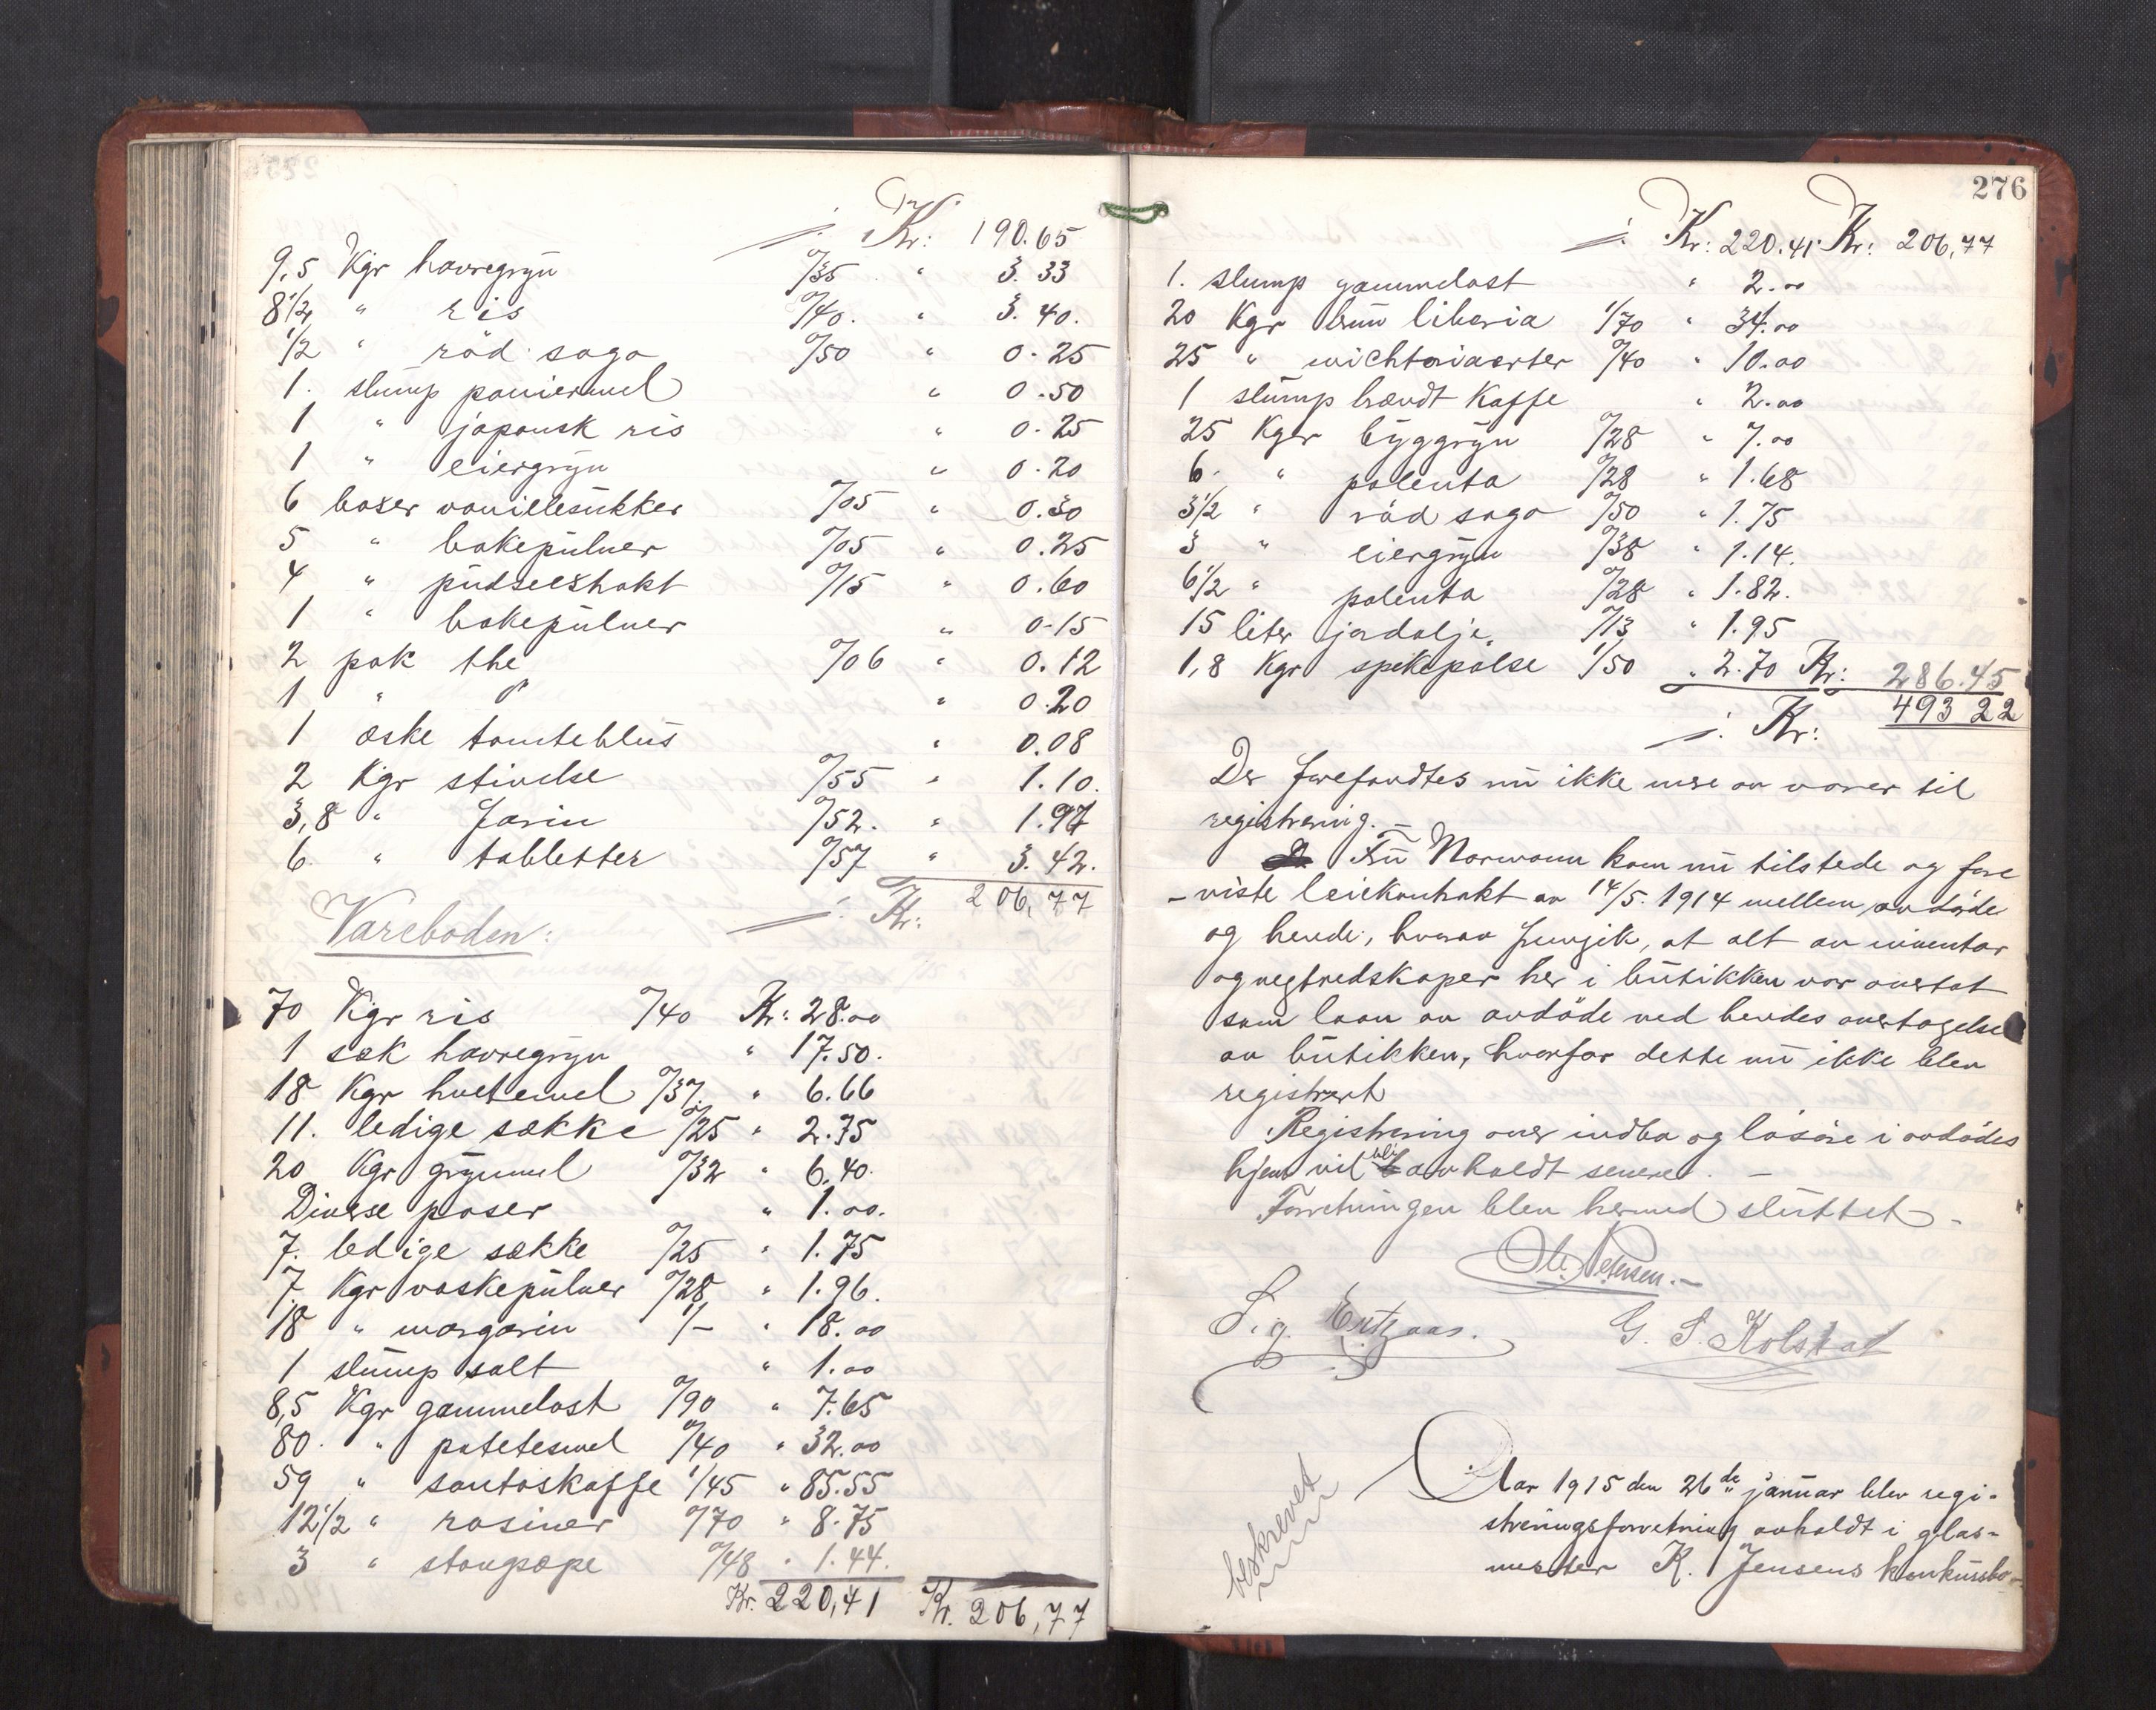 ./. Kr: 190.65
9,5 Kgr havregryn 0/35 " 3.33
8 1/2 " ris 0/40. " 3.40.
1/2 " röd sago 0/50 " 0.25
1. slump paniermel " 0.50
1 " japansk ris " 0.25
1 " eiergryn " 0.20
6 baser vanillesukker 0/05 " 0.30
5 " bakepulver 0/05 " 0.25
4 " pudseekstrakt 0/15 " 0.60
1 " bakepulver " 0.15
2 pak the 0/06 " 0.12
1 " " " 0.20
1 æske tomteblus " 0.08
2 Kgr stivelse 0/55 " 1.10.
3,8 " farin 0/52. " 1.97
6. " tabletter 0/57 " 3.42.
./. Kr: 206,77
Vareboden:
70 Kgr ris 0/40 Kr: 28.00
1 sæk havregryn " 17.50.
18 Kgr hvetemel 0/37. " 6.66
11. ledige sække 0/25 " 2.75
20 Kgr grynmel 0/32 " 6.40.
Diverse poser " 1.00.
7. ledige sække 0/25 " 1.75
7. Kgr vaskepulver 0/28 " 1.96.
18 " margarin 1/- " 18.00
1 slump salt " 1.00
8,5 Kgr gammelost 0/90 " 7.65
80. " potetesmel 0/40 " 32.00
59 " santoskaffe 1/45 " 85.55
12 1/2 " rosiner 0/70 " 8.75
3 " stangsæpe 0/48 " 1.44.
Kr. 220,41 Kr. 206,77
276
./. Kr: 220.41 Kr: 206,77
1. slump gammelost " 2.00
20 Kgr brun liberia 1/70 " 34.00
25 " wichtoriaerter 0/40 " 10.00
1 slump brændt kaffe " 2.00
25 Kgr byggryn 0/28 " 7.00
6. " polenta 0/28 " 1.68
3 1/2 " röd sago 0/50 " 1.75
3 " eiergryn 0/38 " 1.14.
6 1/2 " polenta 0/28 " 1.82.
15 liter jordolje. 0/13 " 1.95
1,8 Kgr spekepölse 1/50 " 2.70 Kr: 286.45
./. Kr: 493 22
Der forefandtes nu ikke mere av varer til
registrering. -
Fru Normann kom nu tilstede og fore
- viste leiekontrakt av 14/5. 1914 mellem avdöde
og hende, hvorav fremgik, at alt av inventar
og vegtredskaper her i butikken var overtat
som laan av avdöde ved hendes overtagelse
av butikken, hvorfor dette nu ikke blev
registrert
Registrering over indbo og lösöre i avdödes
hjem vil bli avholdt senere. -
Forretningen blev hermed sluttet -
Ole Petersen. -
Sig. G. S. Kolstad
beskrevet
Aar 1915 den 26de januar blev regi-
streringsforretning avholdt i glas-
mester K. Jensens konkursbo -